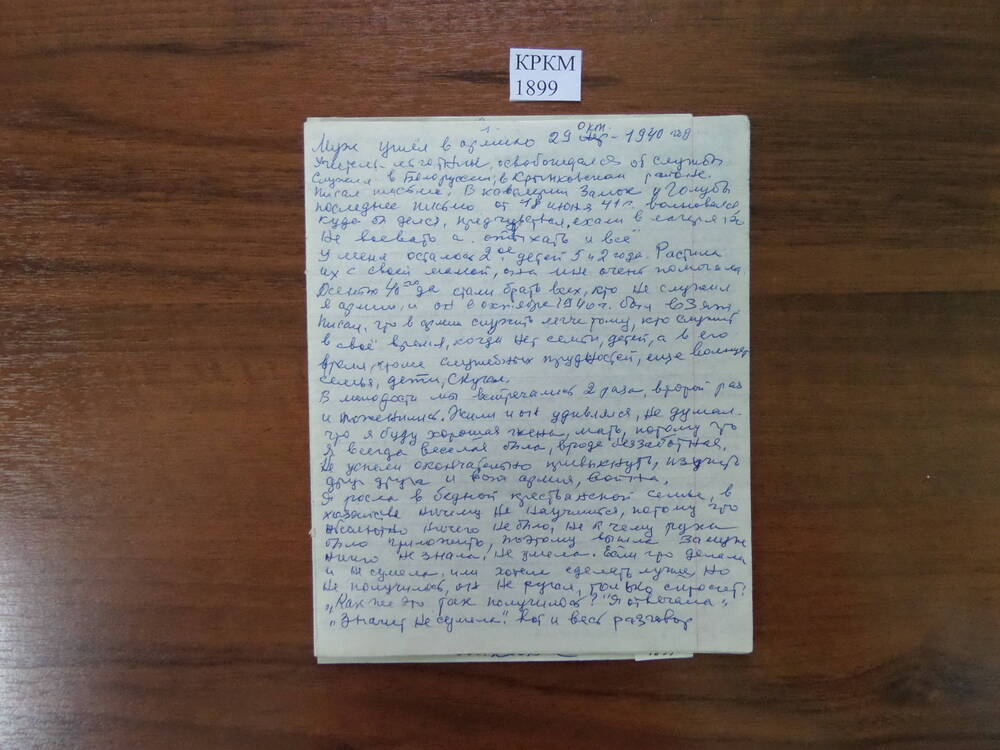 КРКМ
1899
1.
Муж ушёл в армию 29 окт. - 1940 года
Учитель-льготник, освобождался от службы
Служил в Белоруссии, в Крынковском районе.
Писал письма. В кавалерии Замок "Голубь
последнее письмо от 18 июня 41 г. волновался
куда б делся, предчувствия, ехали в лагеря
Не воевать а отдыхать и всё"
У меня осталось 2ое детей 5 и 2 года. Растила
их с своей мамой, она мне очень помогала.
Осенью 40 года стали брать всех, кто не служил
в армии, и он в октябре 1940 г. был взят.
Писал, что в армии служить легче тому, кто служит
в своё время, когда нет семьи, детей, а в его
время, кроме служебных трудностей, еще волнует
семья, дети, скучал.
В молодости мы встречались 2 раза, второй раз
и поженились. Жили и он удивлялся, не думал
что я буду хорошая жена, мать, потому что
я всегда веселая была, вроде беззаботная.
Не успели окончательно привыкнуть, изучить
друг друга и вот армия, война.
Я росла в бедной крестьянской семье, в
хозяйстве ничему не научишся, потому что
абсолютно ничего не было, не к чему руки
было приложить, поэтому вышла замуж
ничего не знала, не умела. Если что делала
и не сумела, или хотела сделать лучше, но
не получилось, он не ругал, только спросит:
"Как же это так получилось?" Я отвечала,
"Значит не сумела". Вот и весь разговор